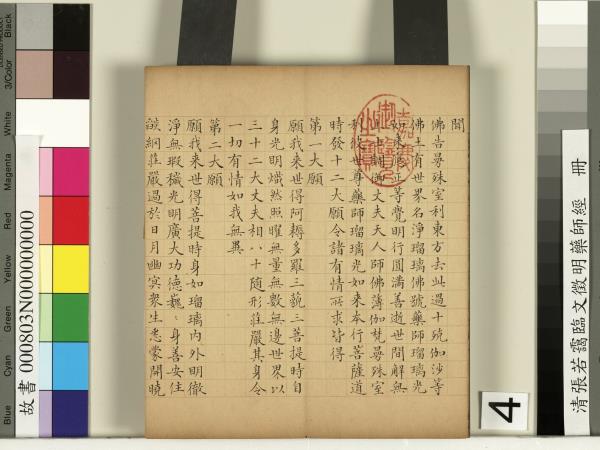 聞
佛告曼殊室利東方去此過十殑伽沙等
佛土有世界名淨瑠璃佛號藥師瑠璃光
如來應正等覺明行圓滿善逝世間解無
上士調御丈夫天人師佛薄伽梵曼殊室
利彼世尊藥師瑠璃光如來本行菩薩道
時發十二大願令諸有情所求皆得
第一大願
願我來世得阿耨多羅三藐三菩提時自
身光明熾然照曜無量無數無邊世界以
三十二大丈夫相八十隨形莊嚴其身令
一切有情如我無異
第二大願
願我來世得菩提時身如瑠璃內外明徹
淨無瑕穢光明廣大功德巍〻身善安住
燄網莊嚴過於日月幽冥眾生悉蒙開曉
嘉慶
御覽
之寶
清張若靄臨文徵明藥師經 冊
故書 000803N000000000
4
Black
3/Color
White
Magenta
Red
Yellow
Green
Cyan
Blue